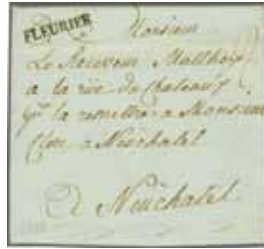 FLEURIER
Monsieur
Le Receveur Matthey
a la rüe du Chateau
la remettre a Monsieur
a Neuchatel
a Neüchatel